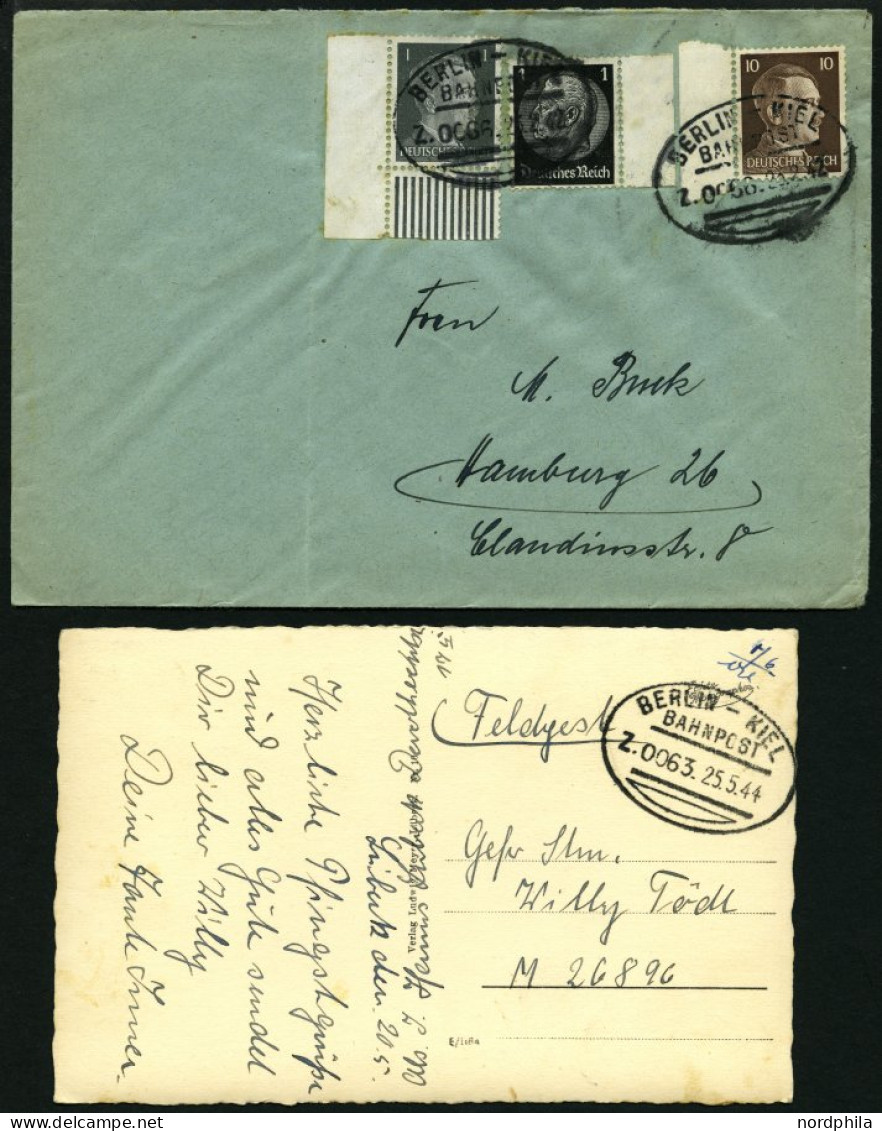 1 1
DEUTSCHES REICH
1 1
Deutsches Reich
10 10
DEUTSCHES REICH
BERLIN - KIEL
BAHNPOST
BERLIN - KIEL
BAHNPOST
Z.0066.
Frau
M. Buck
Hamburg 26
Claudiusstr. 8
Feldpost
BERLIN - KIEL
BAHNPOST
Z.0063.25.5.44
Gefr Stm.
Willy Tödt
M 26896
E/1164
Verlag
Lübeck den 20.5.
Herzliche Pfingstgrüße
und alles Gute sendet
Dir lieber Willy
Deine Tante Irma.
nordphila